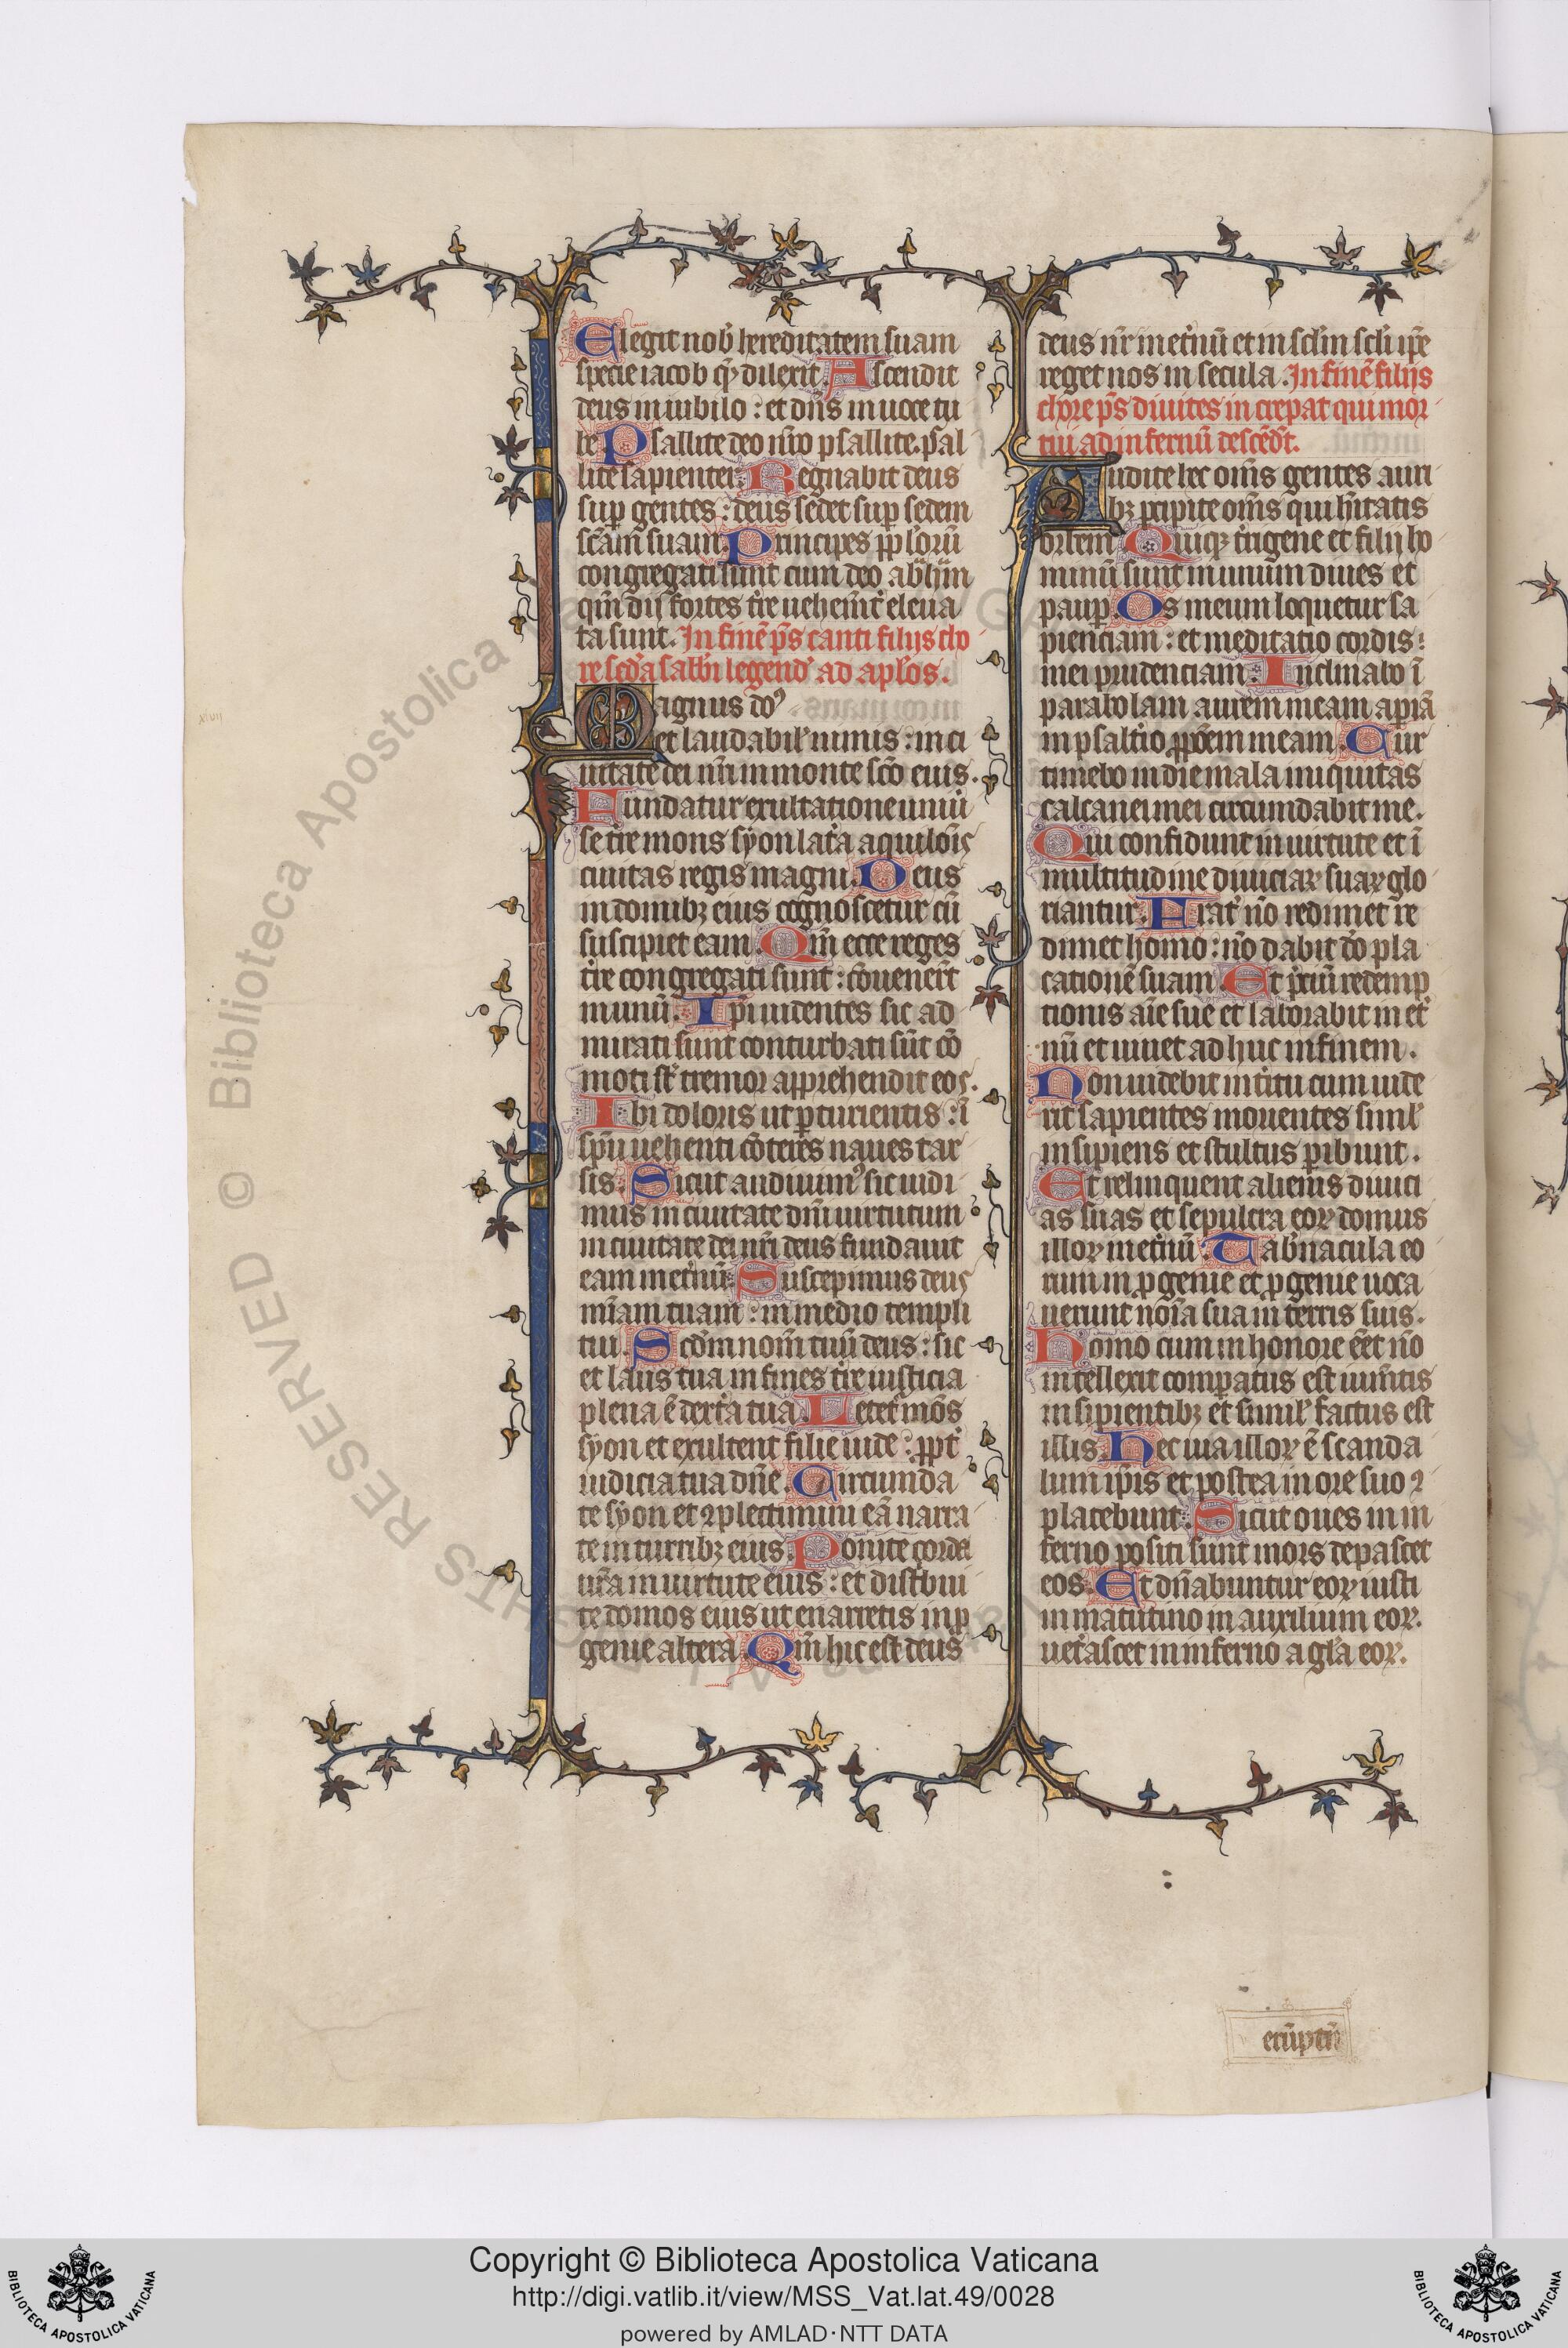 Elegit nob̾ hereditatem suam
speciē iacob qm̄ dilexit. Ascendit
deus in iubilo : et dn̄s in uoce tu
be Psallite deo nr̄o psallite. psal
lite sapienter. Regnabit deus
sup̲ gentes : deus sedet sup̲ sedem
sc̄am suam. Principes ppl̾orū
congregati sunt cum deo abr̄hm̄
qm̄ dij fortes tr̄e uehem̄t̾ eleua
ta sunt. In finē ps̄ canti filijs cho
re scd̾a sabb̾i legend̾ ad apl̾os.
Magnus do᷒
et laudabil̾ nimis : in ci
uitate dei nr̄i in monte sc̄o eius.
Fundatur exultatione uniu̾
se tr̄e mons syon lat̾a aquilon̄s
ciuitas regis magni. Deus
in domibꝫ eius cognoscetur cū
suscipiet eam. Qm̄ ecce reges
tr̄e congregati sunt : cōuener̄t
in unū. Ip̄i uidentes sic ad
mirati sunt conturbati sūt cō
moti st̄ tremor apprehendit eos.
Ibi dolores ut p̲turientis : ī
spū uehenti cōteres naues tar
sis. Sicut audiuim᷒ sic uidi
mus in ciuitate dn̄i uirtutum
in ciuitate dei nr̄i deus fundauit
eam in et̾nū. Suscepimus deus
mīam tuam : in medio templi
tui. Scd̾m nom̄ tuū deus : sic
et laus tua in fines tr̄e iusticia
plena ē dext̾a tua. Letet̾ mōs
syon et exultent filie iude : ꝓpt̾
iudicia tua dn̄e. Circumda
te syon et 9plectimini eā narra
te in turribꝫ eius. Ponite corda
ur̄a in uirtute eius : et distribui
te domos eius ut enarretis in ꝓ
genie altera. Qm̄ hic est deus
deus nr̄ in et̾nū et in scl̾m scl̾i ip̄e
reget nos in secula. In finē filijs
chore ps̄ diuites increpat qui mor
tui ad infernū descēdūt.
Audite hec om̄s gentes auri
bꝫ p̲cipite om̄s qui hītatis
orbem. Quiqꝫ t̾rigene et filij ho
minū simul in unum diues et
paup̲. Os meum loquetur sa
pienciam : et meditatio cordis
mei prudenciam. Inclinabo ī
parabolam aurem meam ap̲iā
in psalt̾io ꝓpōem meam. Cur
timebo in die mala iniquitas
calcanei mei circumdabit me.
Qui confidunt in uirtute et ī
multitudine diuiciaꝝ suaꝝ glo
riantur. Frat̾ nō redimet re
dimet homo : nō dabit dō pla
cationē suam. Et p̾ciū redemp
tionis aīe sue et laborabit in et̾
nū et uiuet ad huc in finem.
Non uidebit int̾itū cum uide
rit sapientes morientes simul̾
insipiens et stultus p̲ibunt.
Et relinquent alienis diuici
as suas et sepulcra eoꝝ domus
illoꝝ in et̾nū. Tab̾nacula eo
rum in ꝓgenie et ꝓgenie uoca
uerunt noīa sua in terris suis.
Homo cum in honore eēt nō
intellexit comp̲atus est iumn̄tis
insipientibꝫ et simil̾ factus est
illis. Hec uia illoꝝ ē scanda
lum ip̄is et postea in ore suo 9
placebunt. Sicut oues in in
ferno positi sunt mors depascet
eos. Et dn̄abuntur eoꝝ iusti
in matutino in auxilium eoꝝ.
uet̾ascet in inferno a gl̾a eoꝝ.
xlvii
Copyright © Biblioteca Apostolica Vaticana
http://digi.vatlib.it/view/MSS_Vat.lat.49/0028
powered by AMLAD·NTT DATA
BIBLIOTECA APOSTOLICA VATICANA
BIBLIOTECA APOSTOLICA VATICANA